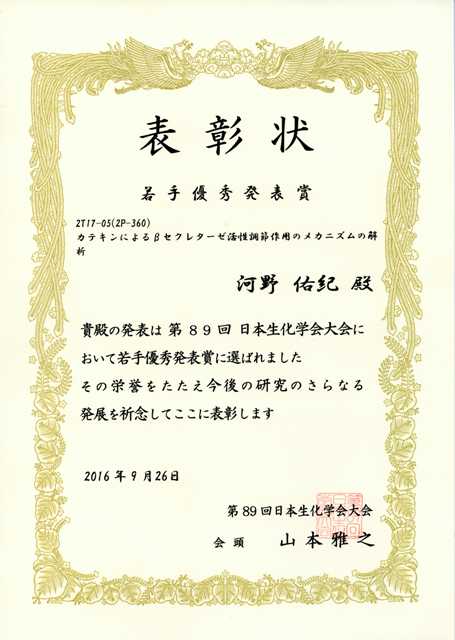 表彰状
若手優秀発表賞
2T17-05(2P-360)
カテキンによるβセクレターゼ活性調節作用のメカニズムの解
析
河野 佑紀 殿
貴殿の発表は 第 89回 日本生化学会大会に
おいて若手優秀発表賞に選ばれました
その栄誉をたたえ今後の研究のさらなる
発展を祈念してここに表彰します
2016 年 9 月 26日
第 89回日本生化学会大会
会頭 山本雅之